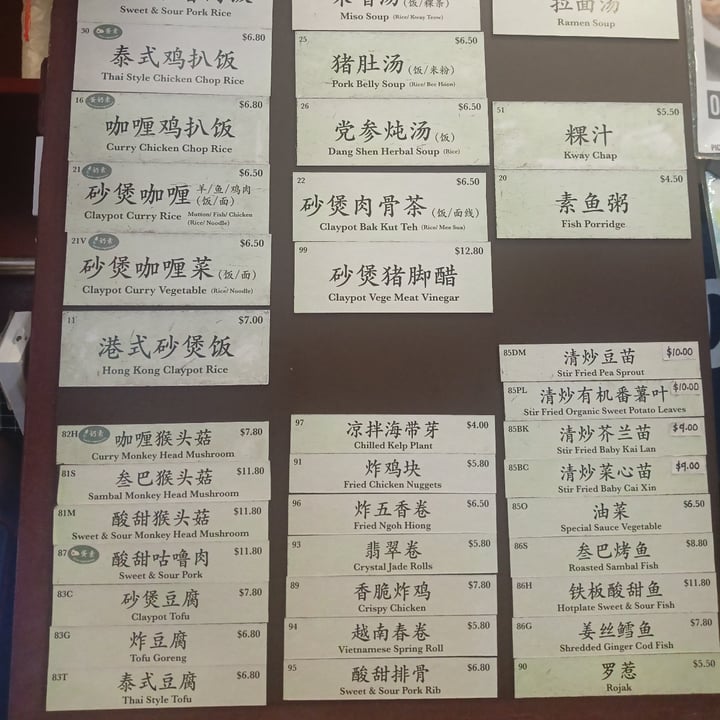 Sweet & Sour Pork Rice
30
$6.80
泰式鸡扒饭
Thai Style Chicken Chop Rice
16
$6.80
咖喱鸡扒饭
Curry Chicken Chop Rice
21
$6.50
砂煲咖喱 羊/鱼/鸡肉 (饭/面)
Claypot Curry Rice Mutton/ Fish/ Chicken (Rice/ Noodle)
21V
$6.50
砂煲咖喱菜 (饭/面)
Claypot Curry Vegetable (Rice/ Noodle)
11
$7.00
港式砂煲饭
Hong Kong Claypot Rice
82H
$7.80
咖喱猴头菇
Curry Monkey Head Mushroom
81S
$11.80
叁巴猴头菇
Sambal Monkey Head Mushroom
81M
$11.80
酸甜猴头菇
Sweet & Sour Monkey Head Mushroom
87
$11.80
酸甜咕噜肉
Sweet & Sour Pork
83C
$7.80
砂煲豆腐
Claypot Tofu
83G
$6.80
炸豆腐
Tofu Goreng
83T
$6.80
泰式豆腐
Thai Style Tofu
Miso Soup (Rice/ Kway Teow)
25
$6.50
猪肚汤 (饭/米粉)
Pork Belly Soup (Rice/ Bee Hoon)
26
$6.50
党参炖汤 (饭)
Dang Shen Herbal Soup (Rice)
22
$6.50
砂煲肉骨茶 (饭/面线)
Claypot Bak Kut Teh (Rice/ Mee Sua)
99
$12.80
砂煲猪脚醋
Claypot Vege Meat Vinegar
97
$4.00
凉拌海带芽
Chilled Kelp Plant
91
$5.80
炸鸡块
Fried Chicken Nuggets
96
$6.50
炸五香卷
Fried Ngoh Hiong
93
$5.80
翡翠卷
Crystal Jade Rolls
89
$7.80
香脆炸鸡
Crispy Chicken
94
$5.80
越南春卷
Vietnamese Spring Roll
95
$6.80
酸甜排骨
Sweet & Sour Pork Rib
拉面汤
Ramen Soup
51
$5.50
粿汁
Kway Chap
20
$4.50
素鱼粥
Fish Porridge
85DM
$10.00
清炒豆苗
Stir Fried Pea Sprout
85PL
$10.00
清炒有机番薯叶
Stir Fried Organic Sweet Potato Leaves
85BK
$9.00
清炒芥兰苗
Stir Fried Baby Kai Lan
85BC
$9.00
清炒菜心苗
Stir Fried Baby Cai Xin
85O
$6.50
油菜
Special Sauce Vegetable
86S
$8.80
叁巴烤鱼
Roasted Sambal Fish
86H
$11.80
铁板酸甜鱼
Hotplate Sweet & Sour Fish
86G
$7.80
姜丝鳕鱼
Shredded Ginger Cod Fish
90
$5.50
罗惹
Rojak